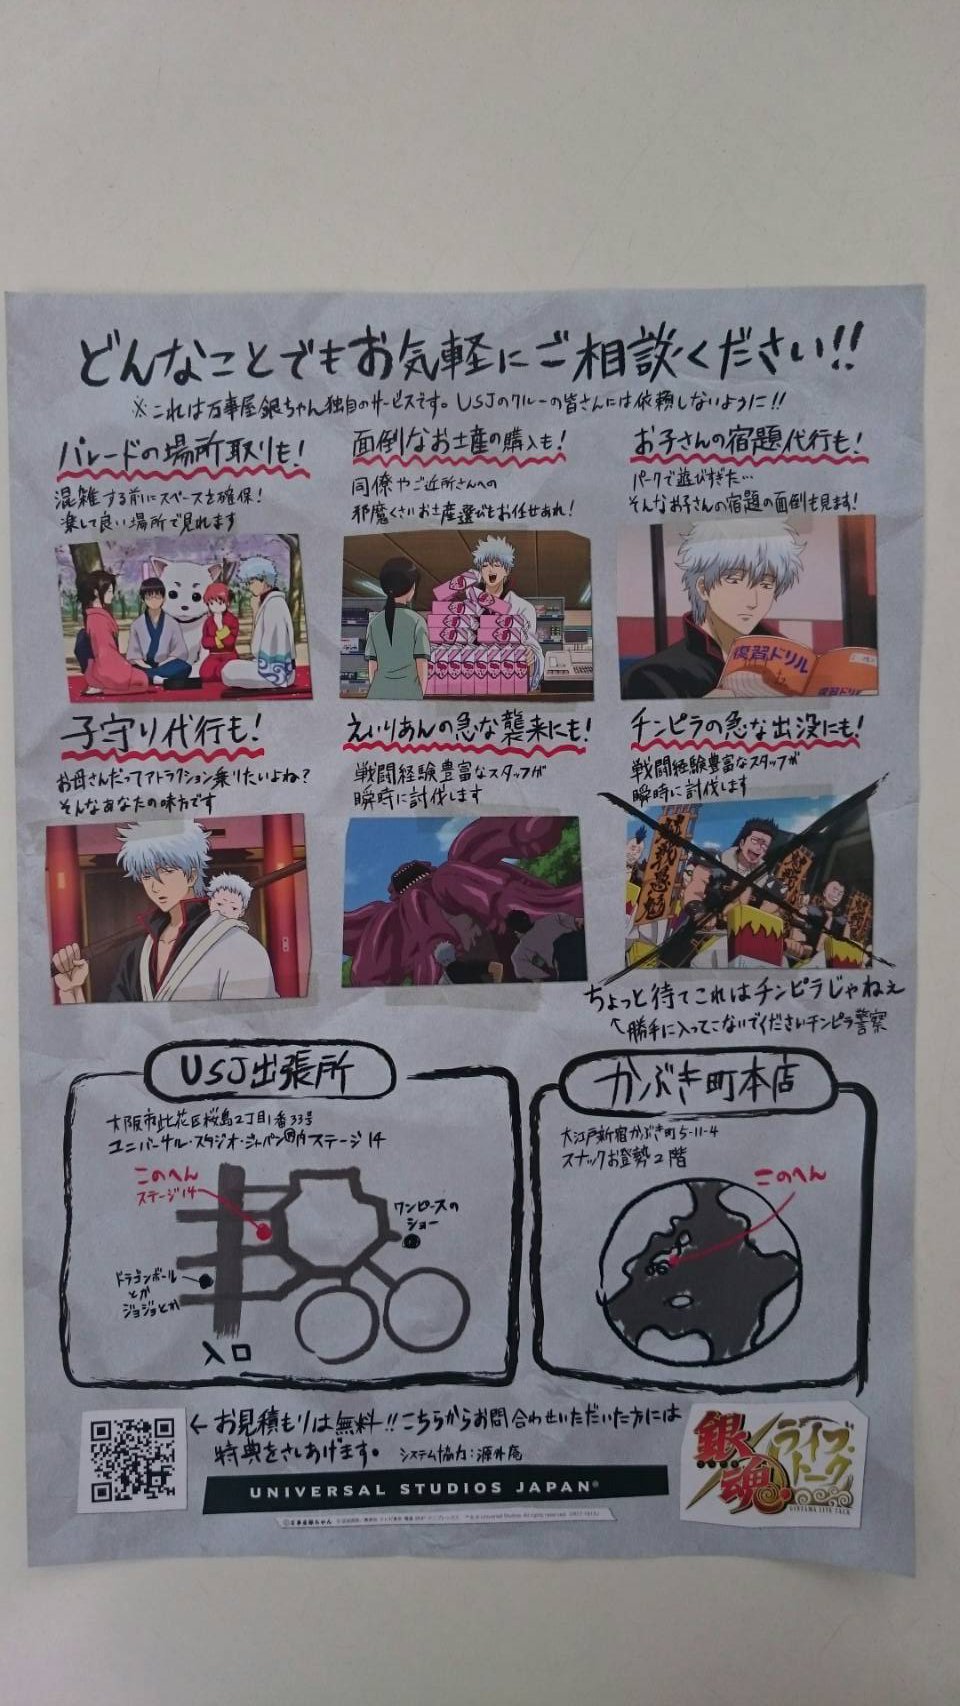 どんなことでもお気軽にご相談ください!!
※これは万事屋銀ちゃん独自のサービスです。USJのクルーの皆さんには依頼しないように!!
パレードの場所取りも!
混雑する前にスペースを確保!
楽して良い場所で見れます
面倒なお土産の購入も!
同僚やご近所さんへの
邪魔くさいお土産選びもお任せあれ!
お子さんの宿題代行も!
パークで遊びすぎた…
そんなお子さんの宿題の面倒も見ます!
復習ドリル
復習ドリル
子守り代行も!
お母さんだってアトラクション乗りたいよね?
そんなあなたの味方です
えいりあんの急な襲来にも!
戦闘経験豊富なスタッフが
瞬時に討伐します
チンピラの急な出没にも!
戦闘経験豊富なスタッフが
瞬時に討伐します
ちょっと待てこれはチンピラじゃねぇ
↑勝手に入ってこないでくださいチンピラ警察
USJ出張所
大阪市此花区桜島2丁目1番33号
ユニバーサル・スタジオ・ジャパン®内ステージ14
このへん
ステージ14
ワンピースの
ショー
ドラゴンボール
とか
ジョジョとか
入口
かぶき町本店
大江戸新宿かぶき町5-11-4
スナックお登勢2階
このへん
←お見積もりは無料!!こちらからお問合わせいただいた方には
特典をさしあげます。 システム協力:源外庵
UNIVERSAL STUDIOS JAPAN®
銀魂
ライブ・
トーク
GINTAMA LIVE TALK